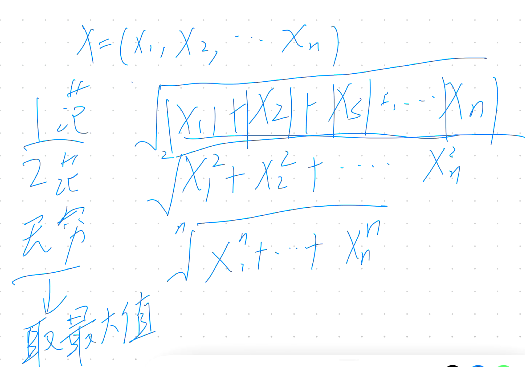 X=(X₁,X₂,…Xₙ)
1范 √|X₁|+|X₂|+|X₃|+…|Xₙ|
2范 ²√X₁²+X₂²+…Xₙ²
无穷 ⁿ√X₁ⁿ+…+Xₙⁿ
↓
取最大值